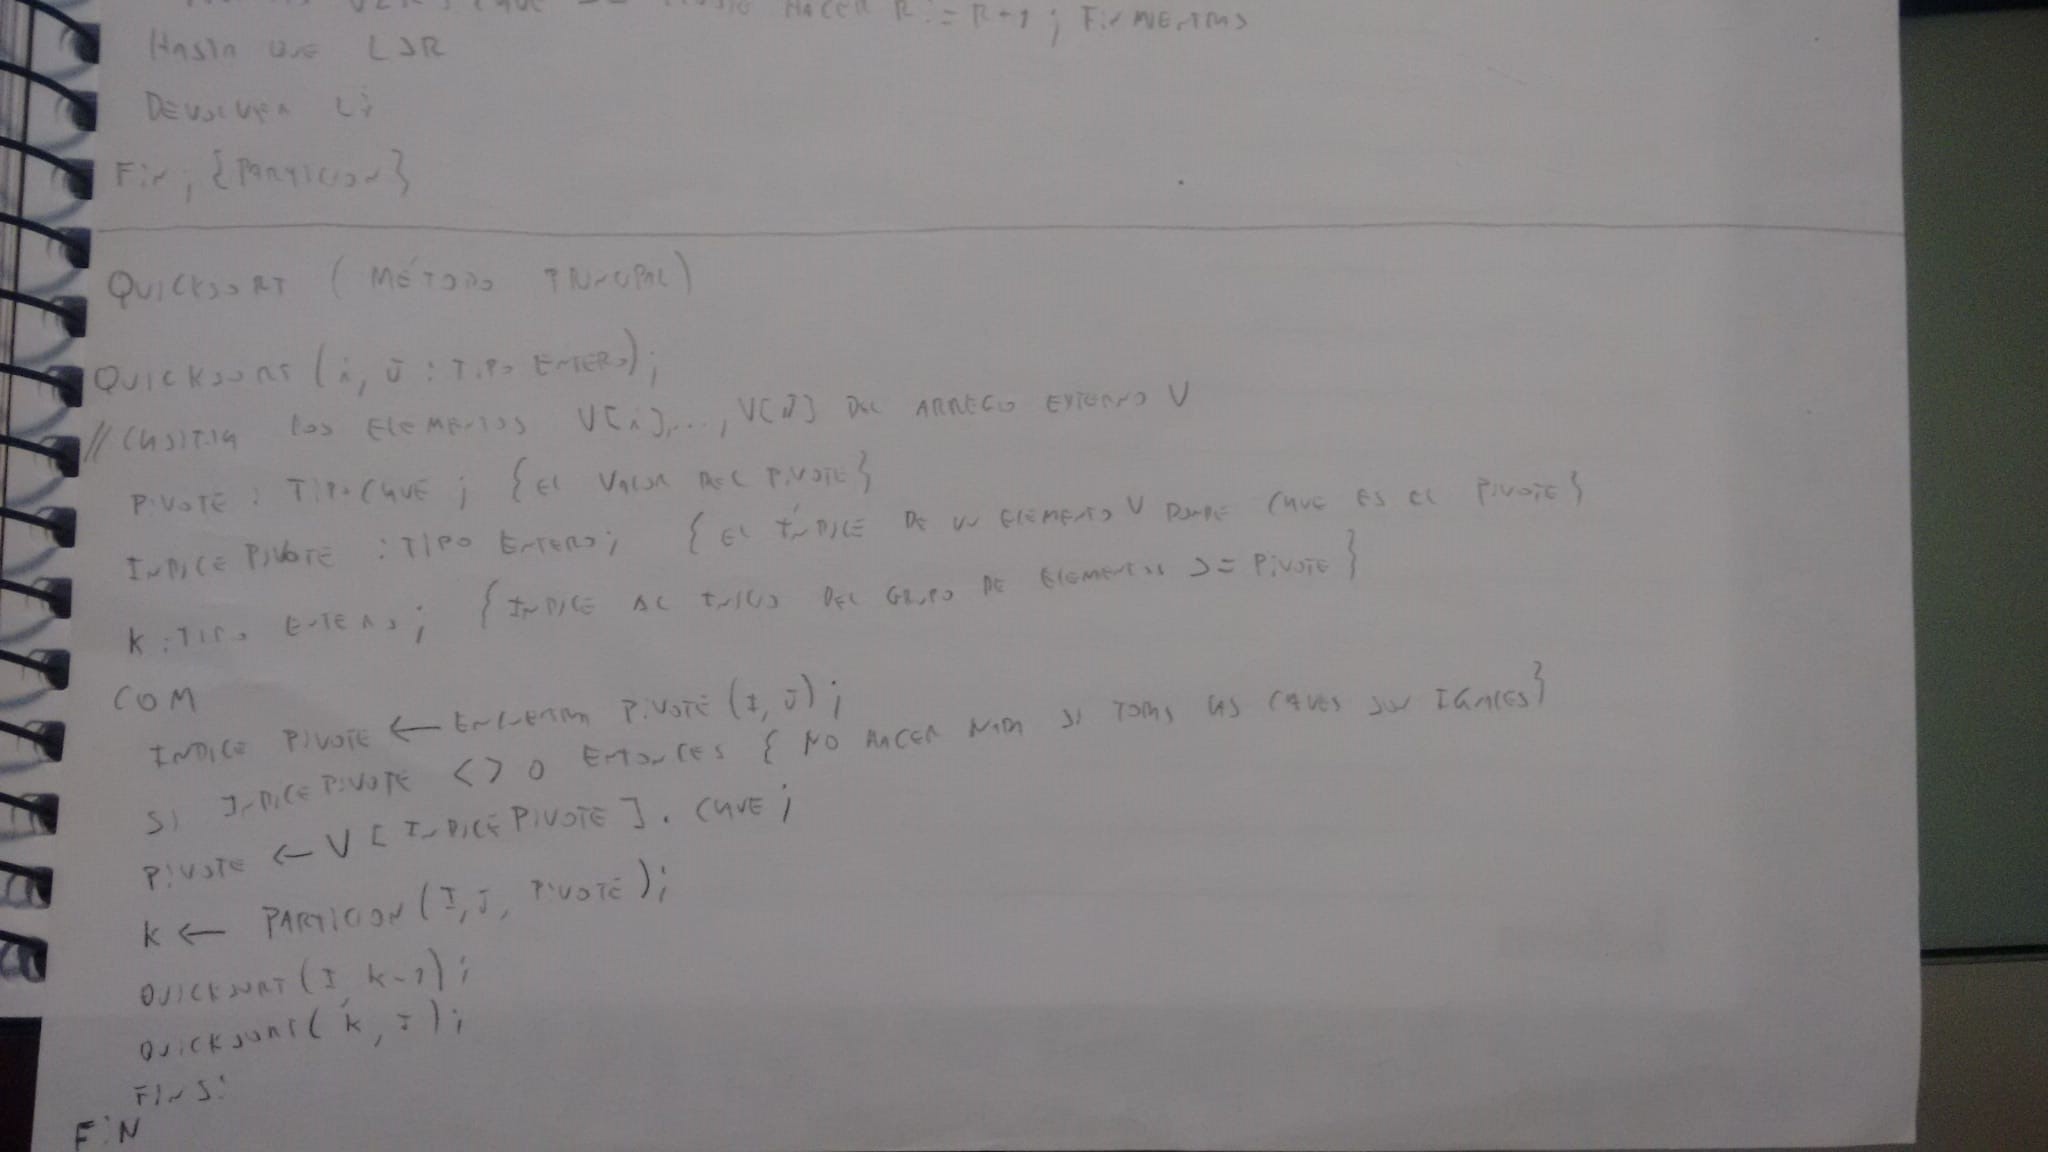 HACER R := R+1 ; FINMIENTRAS
HASTA QUE L>R
DEVOLVER L;
FIN; {PARTICION}
QUICKSORT (MÉTODO PRINCIPAL)
QUICKSORT (i, J : TIPO ENTERO);
// CLASIFICA LOS ELEMENTOS V[i],..., V[J] DEL ARREGLO EXTERNO V
PIVOTE : TIPOCLAVE ; {EL VALOR DEL PIVOTE}
INDICE PIVOTE : TIPO ENTERO; {EL ÍNDICE DE UN ELEMENTO V DONDE CLAVE ES EL PIVOTE}
K : TIPO ENTERO; {INDICE AL INICIO DEL GRUPO DE ELEMENTOS >= PIVOTE}
COM
INDICE PIVOTE ← ENCUENTRA PIVOTE (I, J) ;
SI INDICE PIVOTE <> 0 ENTONCES { NO HACER NADA SI TODAS LAS CLAVES SON IGUALES}
PIVOTE ← V [INDICE PIVOTE] . CLAVE ;
K ← PARTICION (I, J, PIVOTE);
QUICKSORT (I, K-1) ;
QUICKSORT ( K, J ) ;
FINSI
FIN